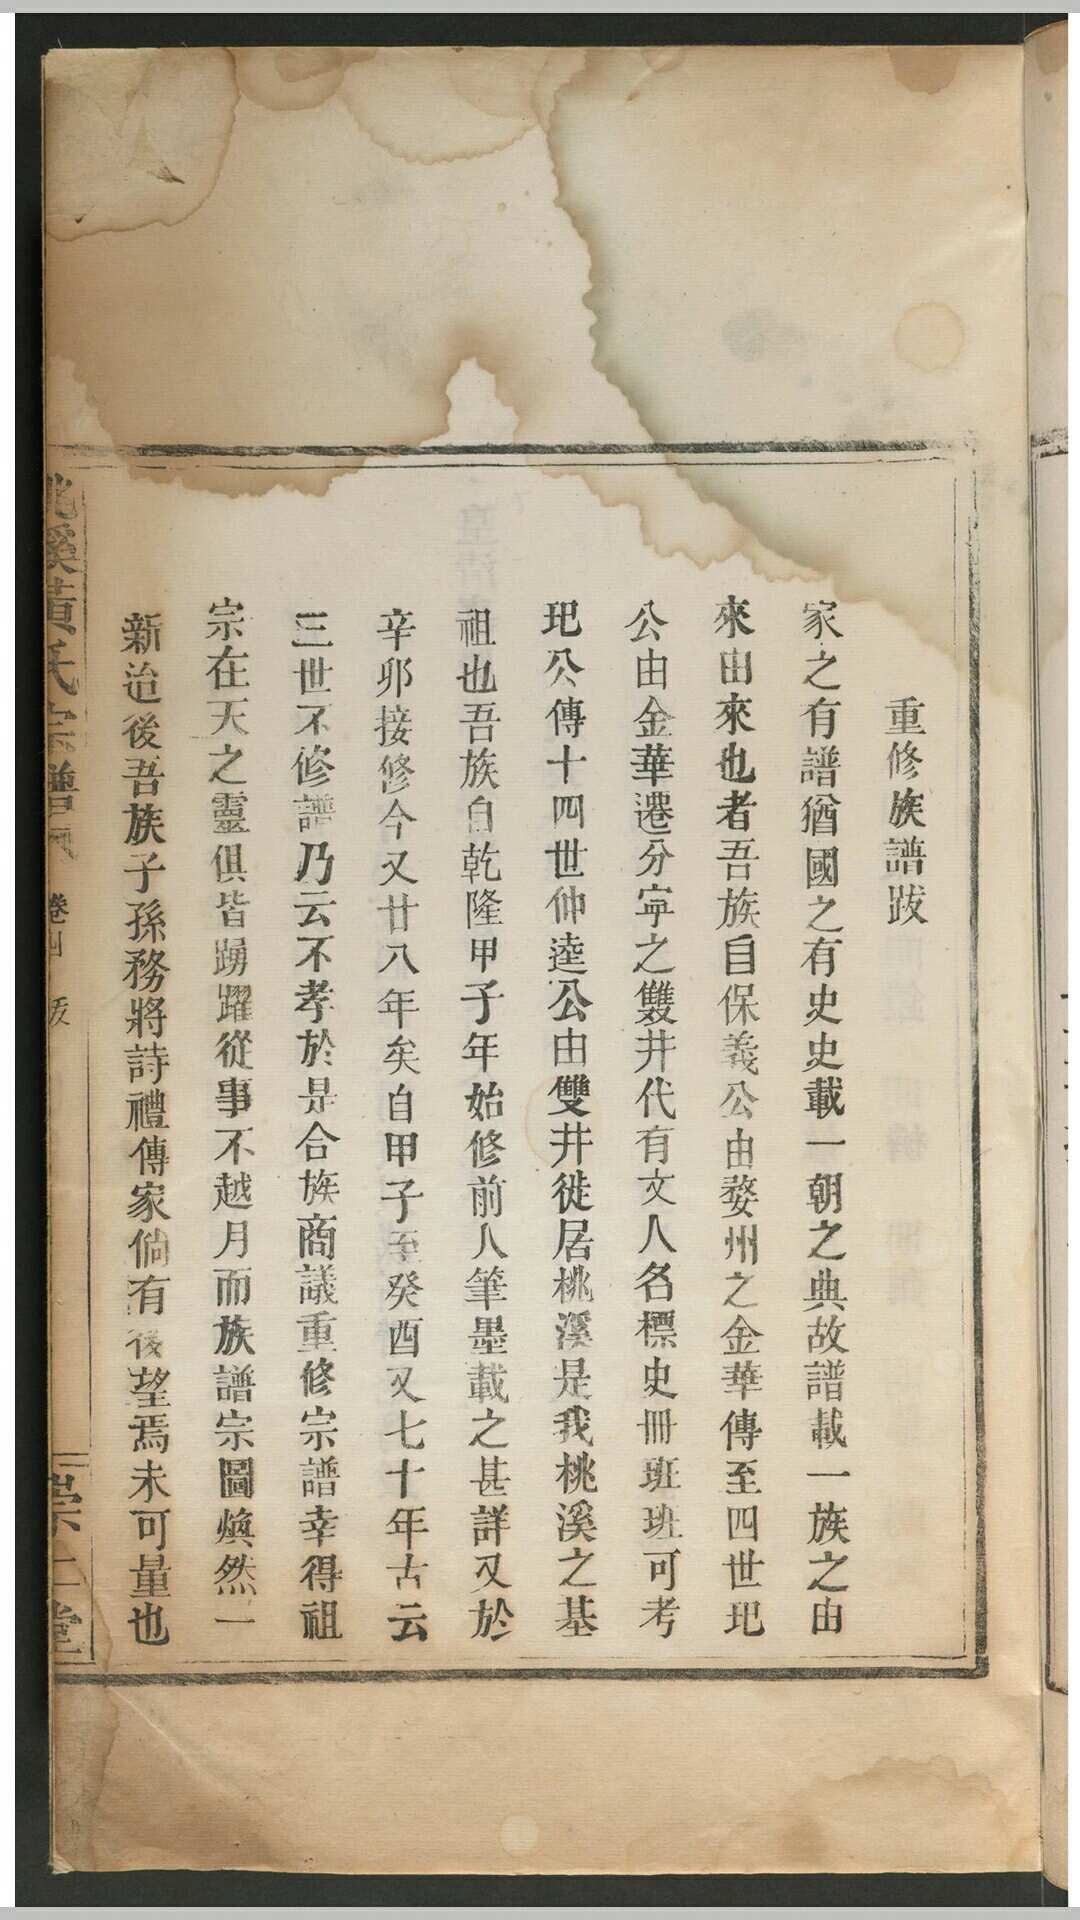 重修族譜跋
家之有譜猶國之有史史載一朝之典故譜載一族之由
來由來也者吾族自保義公由婺州之金華傳至四世玘
公由金華遷分寧之雙井代有文人名標史冊班班可考
玘公傳十四世仲逵公由雙井徙居桃溪是我桃溪之基
祖也吾族自乾隆甲子年始修前人筆墨載之甚詳又於
辛卯接修今又廿八年矣自甲子至癸酉又七十年古云
三世不修譜乃云不孝於是合族商議重修宗譜幸得祖
宗在天之靈俱皆踴躍從事不越月而族譜宗圖煥然一
新迨後吾族子孫務將詩禮傳家倘有後望焉未可量也
桃溪黃氏宗譜 卷四 跋 堂